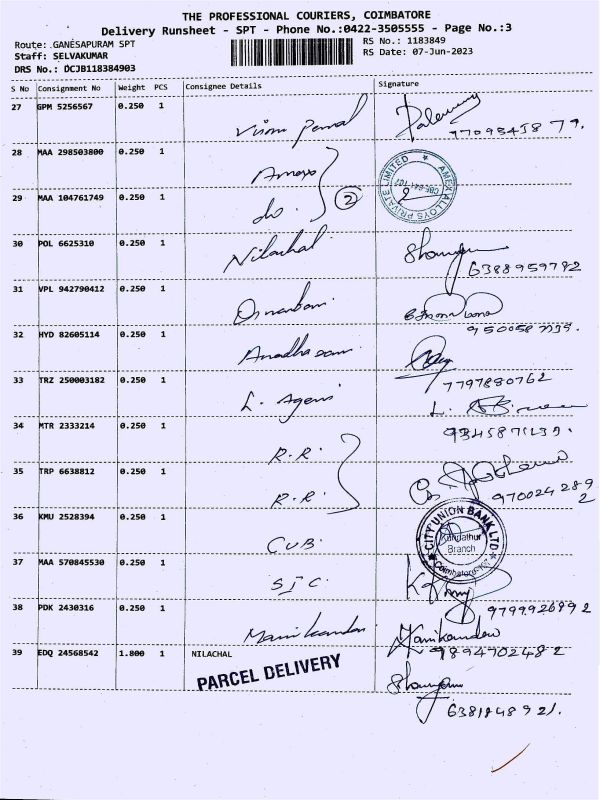 THE PROFESSIONAL COURIERS, COIMBATORE
Delivery Runsheet - SPT - Phone No.:0422-3505555 - Page No.:3
Route: GANESAPURAM SPT
RS No.: 1183849
Staff: SELVAKUMAR
RS Date: 07-Jun-2023
DRS No.: DCJB118384903
S No Consignment No Weight PCS Consignee Details Signature
27 GPM 5256567 0.250 1
28 MAA 298503800 0.250 1
AMEX ALLOYS PRIVATE LIMITED
29 MAA 104761749 0.250 1 do 2
30 POL 6625310 0.250 1 Nilachal
6388959792
31 VPL 942790412 0.250 1
32 HYD 82605114 0.250 1
7797880762
33 TRZ 250003182 0.250 1 L. Agens
34 MTR 2333214 0.250 1 R.R.
35 TRP 6638812 0.250 1 R.R.
970024289
2
36 KMU 2528394 0.250 1 CUB.
CITY UNION BANK LTD
Branch
37 MAA 570845530 0.250 1
9799926892
38 PDK 2430316 0.250 1 Manikandan Manikandan
9894702482
39 EDQ 24568542 1.800 1 NILACHAL
PARCEL DELIVERY